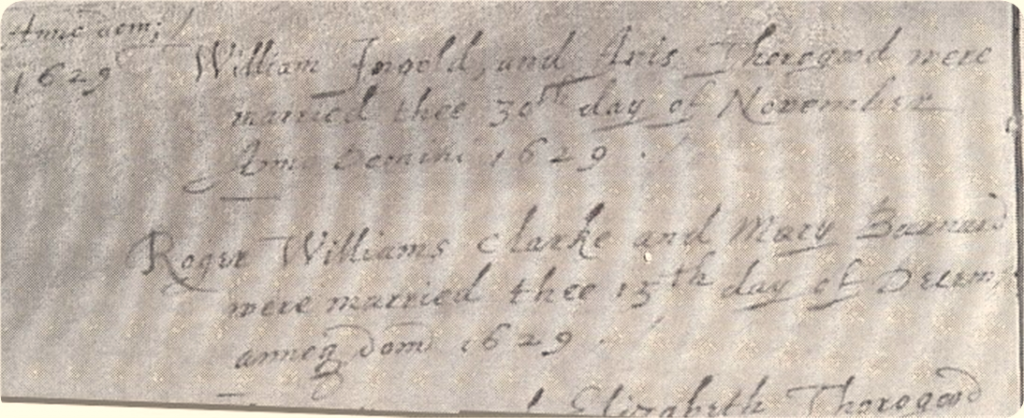 Anno dom;
1629 William Ingold, and Aris Thorogood were
married thee 30th day of November
Anno Domini 1629.
Roger Williams Clarke and Mary Barnard
were married thee 15th day of Decem,
anneq dom 1629.
Elizabeth Thorogood